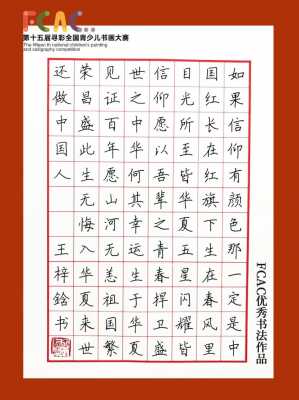 FCAC
第十五届寻彩全国青少儿书画大赛
and calligraphy competition
如果信仰有颜色那一定是中
国红长在红旗下生在春风里
目光所至皆华夏五星闪耀皆
信仰愿以吾辈之青春捍卫盛
世之中华何其幸运生于华夏
见证百年愿山河无恙祖国繁
荣昌盛此生无悔入华夏来世
还做中国人 王梓铪书
FCAC优秀书法作品